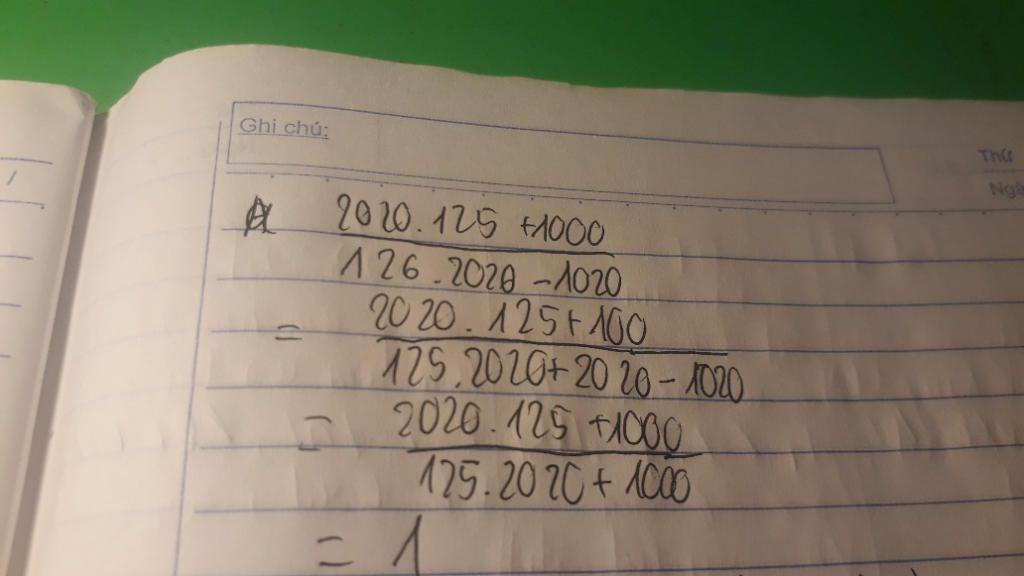 Ghi chú:
Thứ
Ngà
A 2020.125 +1000
126.2020 -1020
= 2020.125+100
125.2020+2020-1020
= 2020.125 +1000
125.2020+1000
= 1